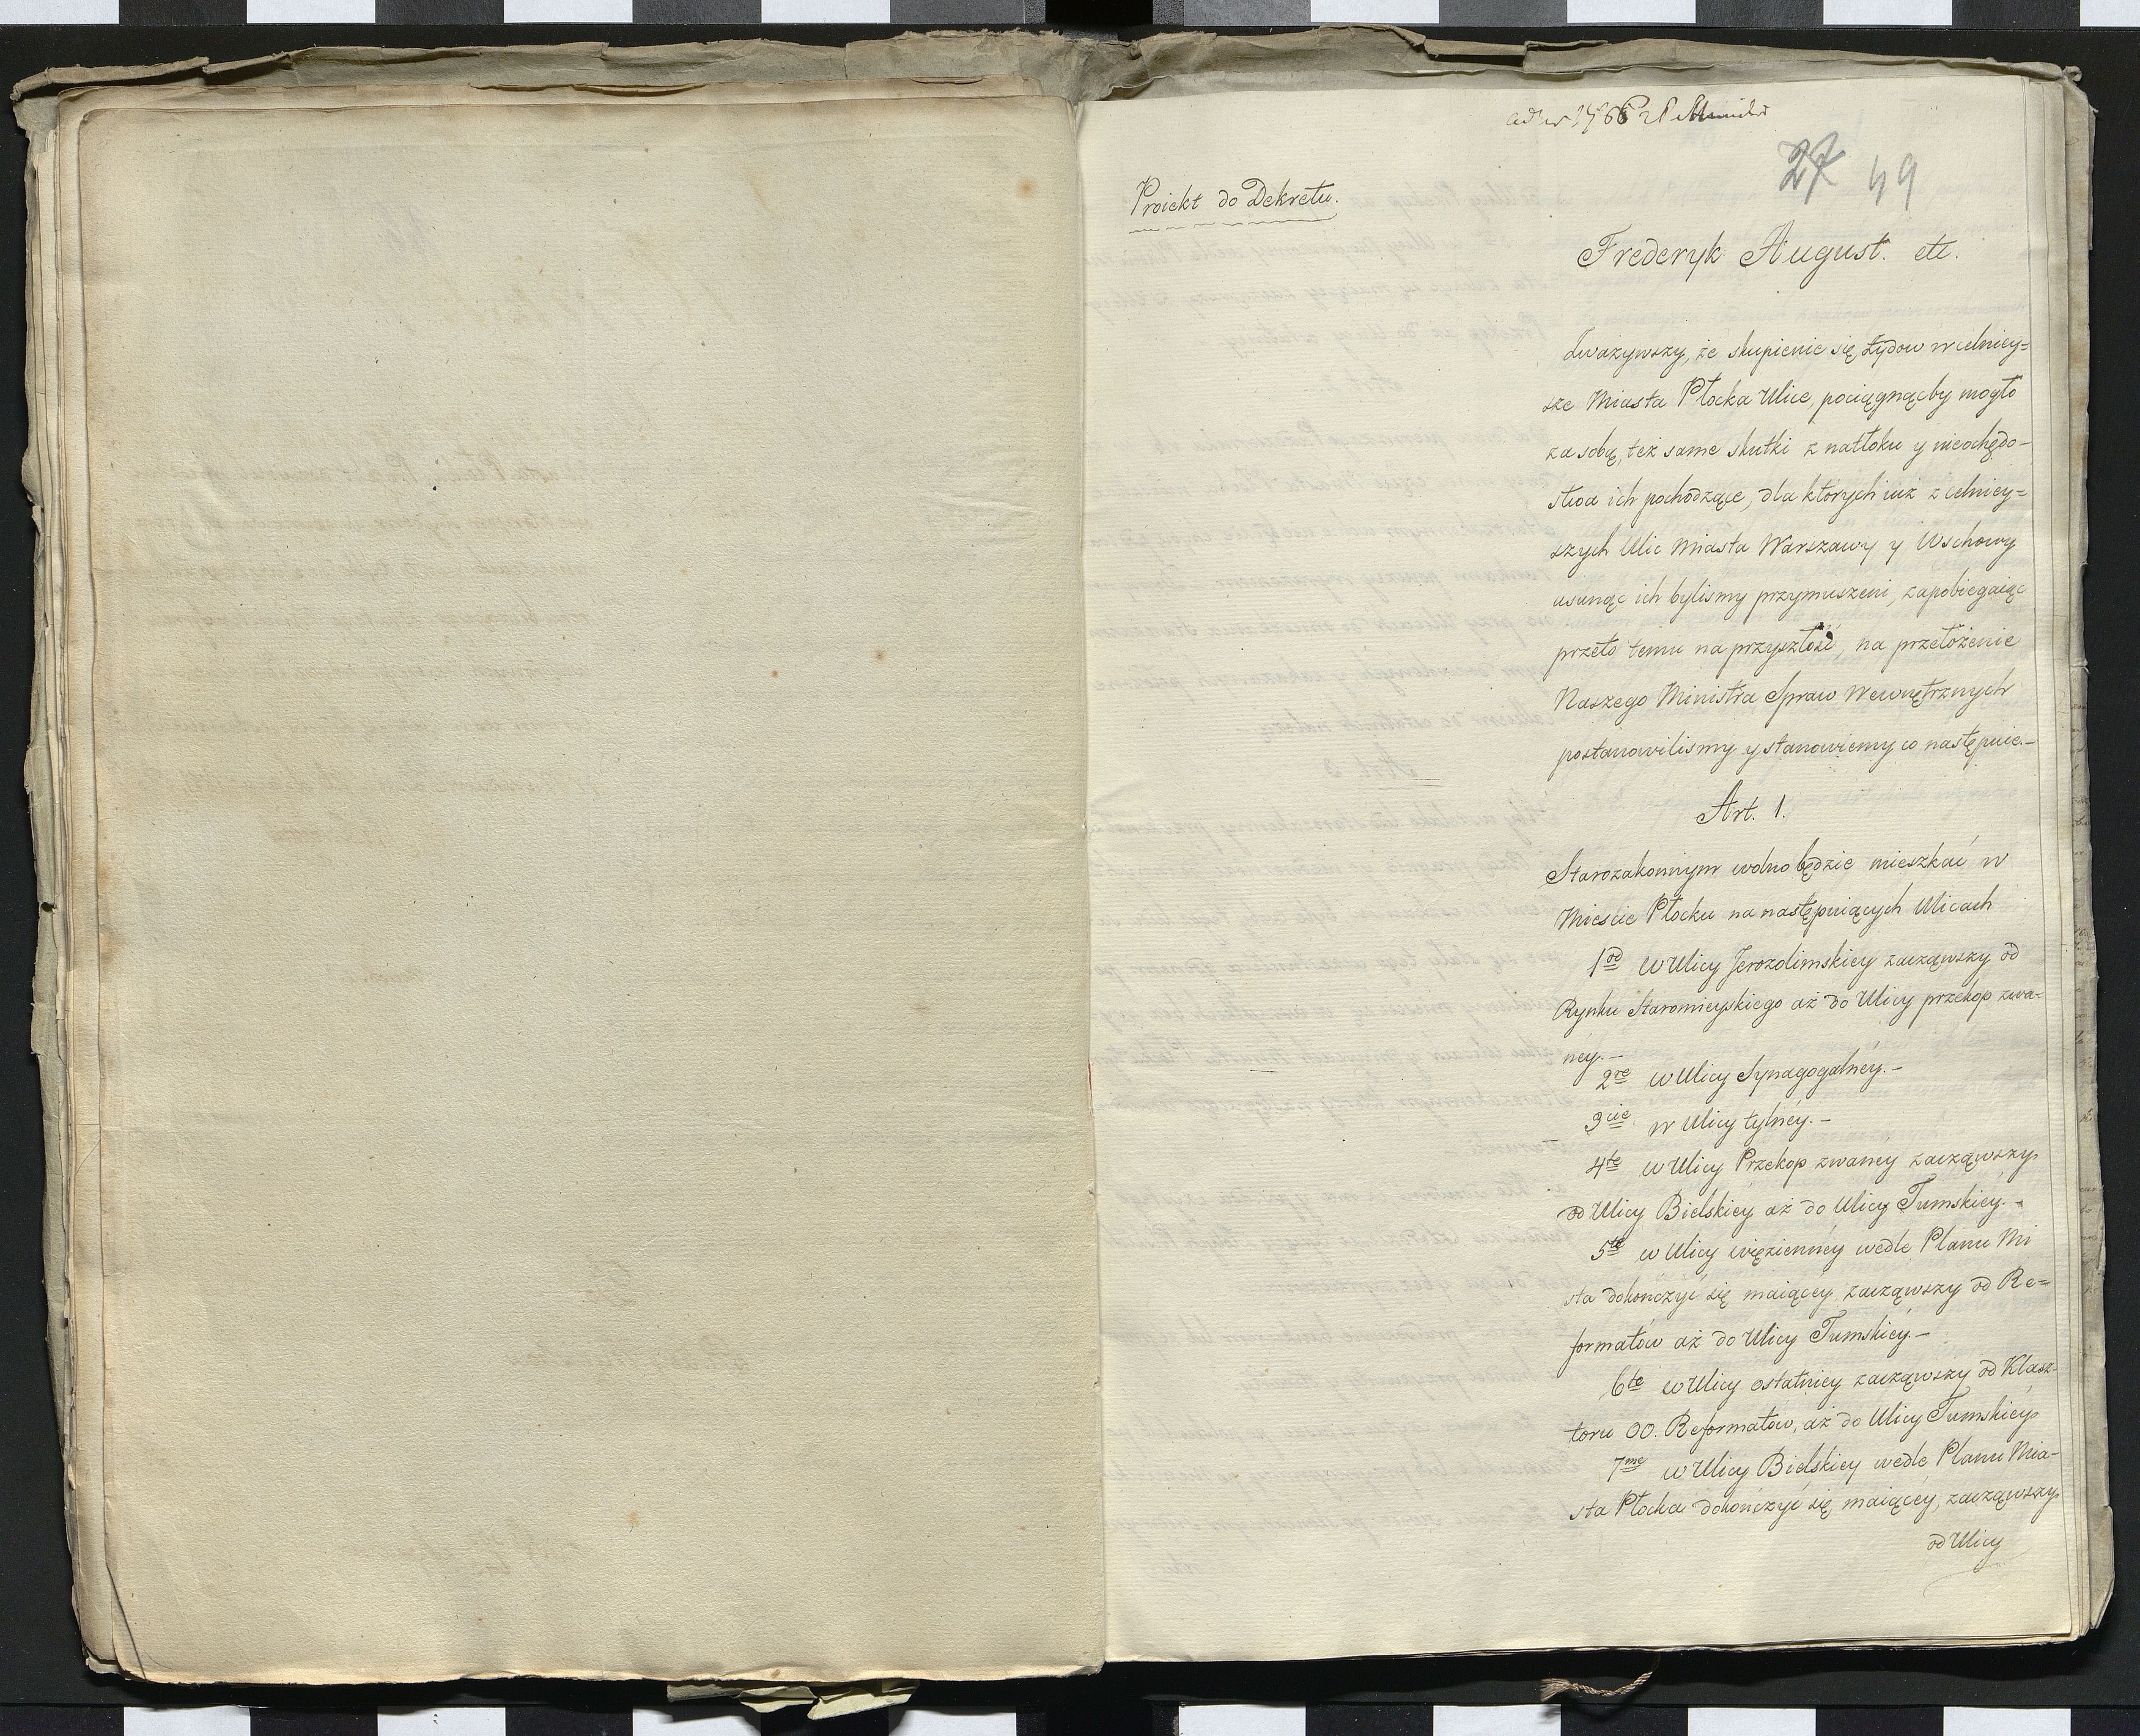 27 49
Proiekt do Dekretu.
Frederyk August. etc.
Zważywszy, że skupienie się Żydow w celniey=
sze Miasta Płocka Ulice, pociągnąćby mogło
za sobą, też same skutki z natłoku y nieochędo-
stwa ich pochodzące, dla ktorych iuż z celniey=
szych Ulic Miasta Warszawy y Wschowy
usunąć ich bylismy przymuszeni, zapobiegaiąc
przeto temu na przyszłość, na przełożenie
Naszego Ministra Spraw Wewnętrznych
postanowilismy y stanowiemy co następuie.-
Art. 1.
Starozakonnym wolno będzie mieszkać w
Miescie Płocku na następuiących Ulicach
1od w Ulicy Jerozolimskiey zacząwszy od
Rynku Staromieyskiego aż do Ulicy przekop zwa=
ney.-
2re w Ulicy Synagogalnéy.-
3cie w Ulicy tylnéy.-
4te w Ulicy Przekop zwanéy zacząwszy
od Ulicy Bielskiéy aż do Ulicy Tumskiéy.-
5te w Ulicy więziennéy wedle Planu Mi
sta dokończyć się maiącéy, zacząwszy od Re=
formatów aż do Ulicy Tumskiéy.-
6te w Ulicy ostatniey zacząwszy od Klasz-
toru OO. Reformatów, aż do Ulicy Tumskiéy
7me w Ulicy Bielskiey wedle Planu Mia-
sta Płocka dokończyć się maiącéy, zacząwszy
od Ulicy